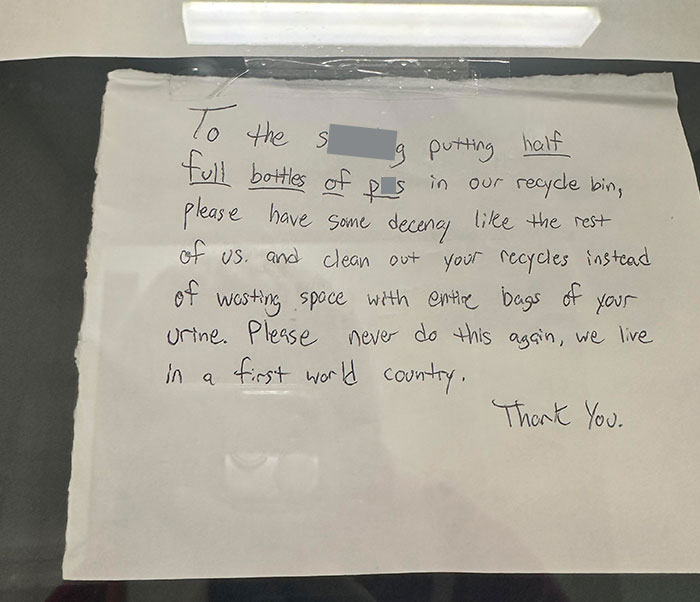 To the s g putting half
full bottles of p s in our recycle bin,
please have some decency like the rest
of us. and clean out your recycles instead
of wasting space with entire bags of your
urine. Please never do this again, we live
in a first world country.
Thank You.